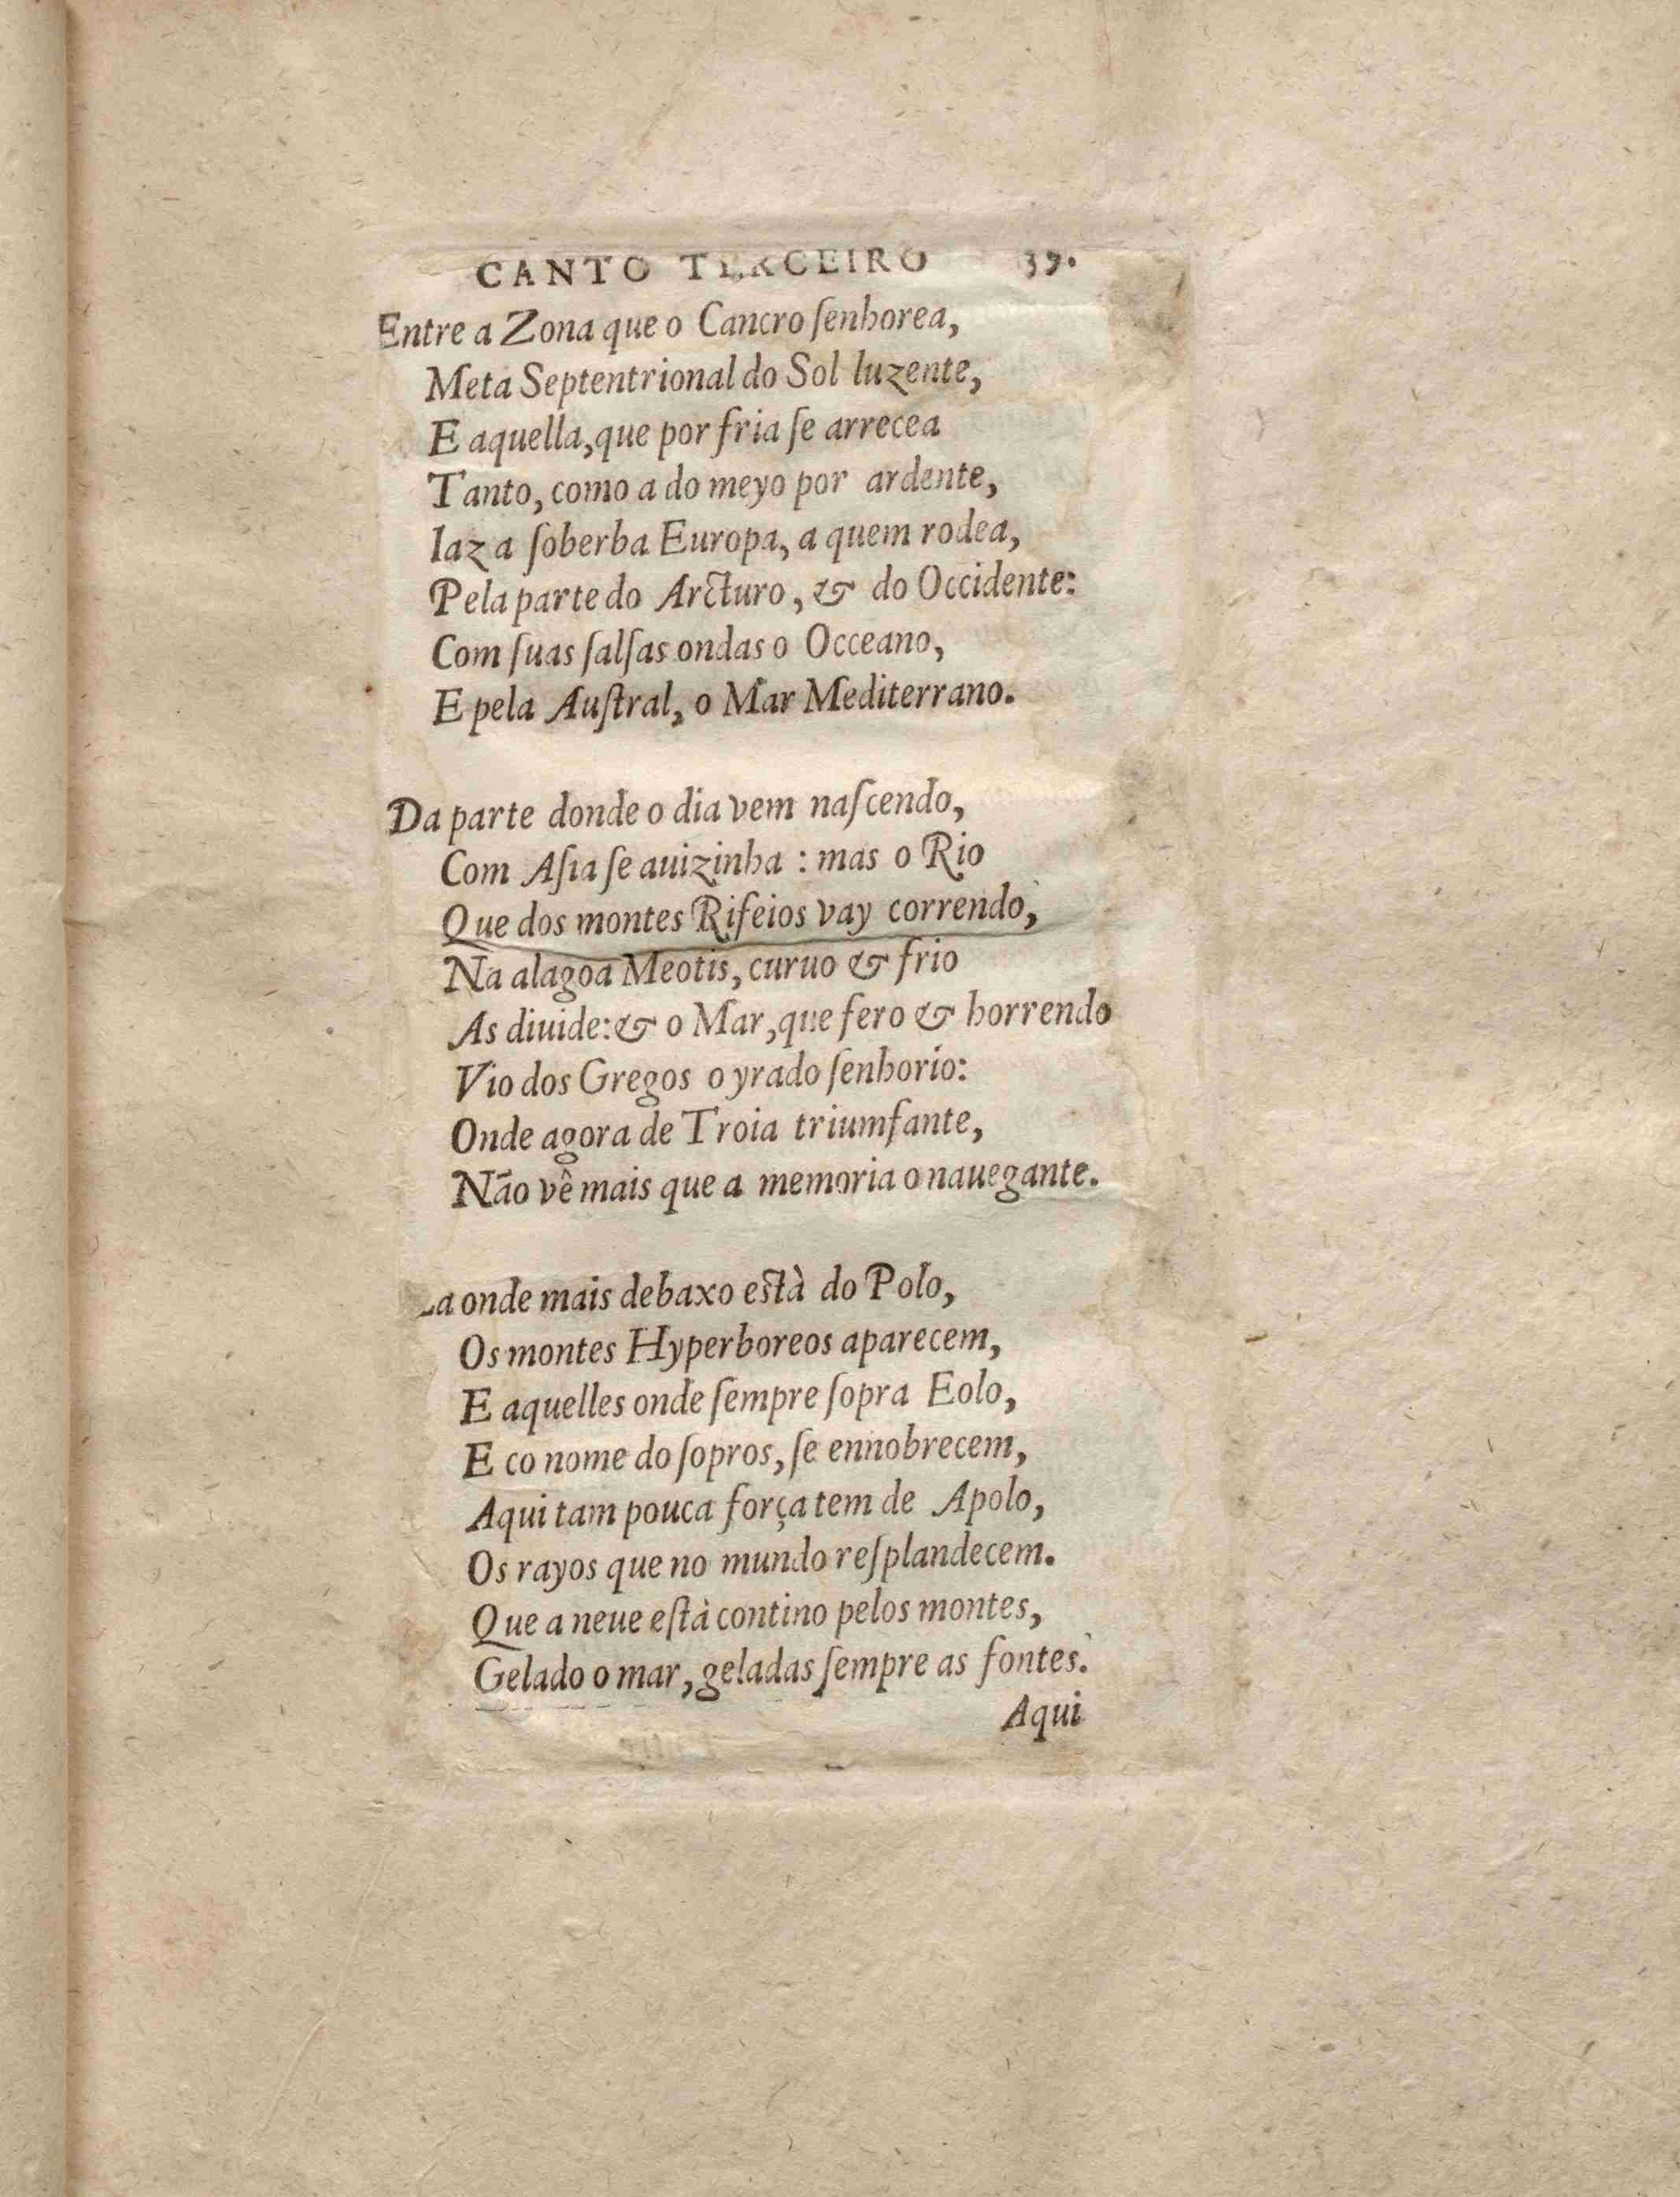 CANTO TERCEIRO 37.
Entre a Zona que o Cancro ſenhorea,
Meta Septentrional do Sol luzente,
E aquella, que por fria ſe arrecea
Tanto, como a do meyo por ardente,
Iaz a ſoberba Europa, a quem rodea,
Pela parte do Arcturo, & do Occidente:
Com ſuas ſalſas ondas o Occeano,
E pela Auſtral, o Mar Mediterrano.
Da parte donde o dia vem naſcendo,
Com Aſia ſe auizinha : mas o Rio
Que dos montes Rifeios vay correndo,
Na alagoa Meotis, curuo & frio
As diuide: & o Mar, que fero & horrendo
Vio dos Gregos o yrado ſenhorio:
Onde agora de Troia triumfante,
Não vê mais que a memoria o nauegante.
La onde mais debaxo eſtà do Polo,
Os montes Hyperboreos aparecem,
E aquelles onde ſempre ſopra Eolo,
E co nome do ſopros, ſe ennobrecem,
Aqui tam pouca força tem de Apolo,
Os rayos que no mundo reſplandecem.
Que a neue eſtà contino pelos montes,
Gelado o mar, geladas ſempre as fontes.
Aqui